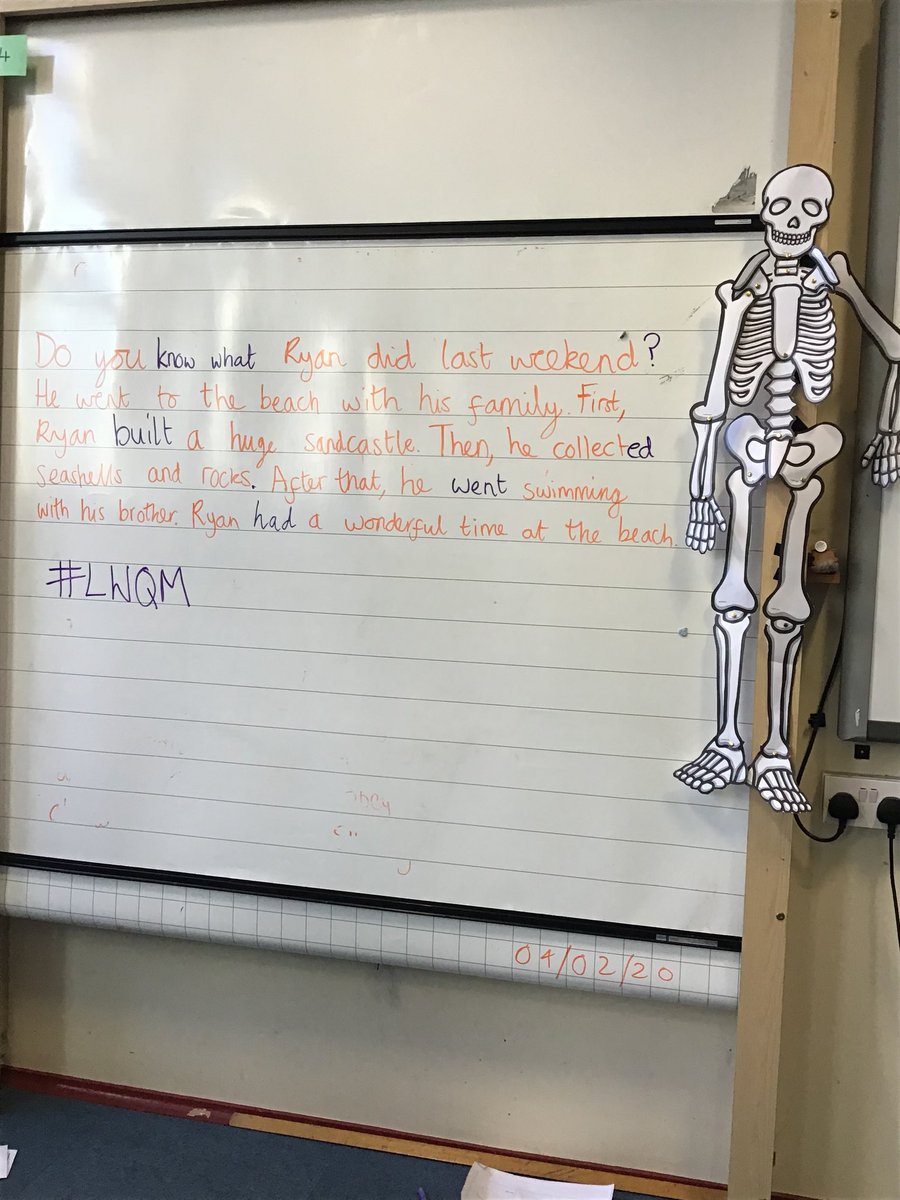 4
Do you know what Ryan did last weekend?
He went to the beach with his family. First,
Ryan built a huge sandcastle. Then, he collected
seashells and rocks. After that, he went swimming
with his brother. Ryan had a wonderful time at the beach.
#LWQM
04/02/20